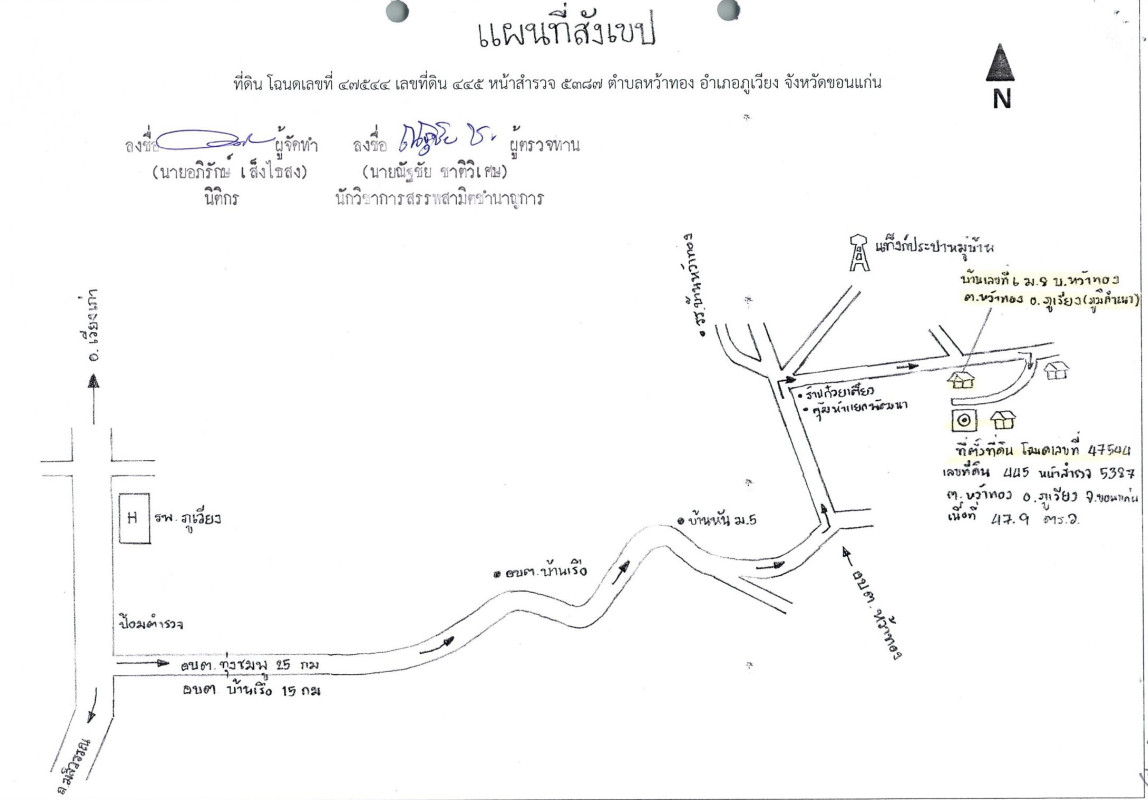 แผนที่สังเขป
ที่ดิน โฉนดเลขที่ ๔๗๕๔๔ เลขที่ดิน ๔๔๕ หน้าสำรวจ ๕๓๘๗ ตำบลหว้าทอง อำเภอภูเวียง จังหวัดขอนแก่น
N
ลงชื่อ ผู้จัดทำ
(นายอภิรักษ์ เส็งไธสง)
นิติกร
ลงชื่อ ณัฐชัย ช. ผู้ตรวจทาน
(นายณัฐชัย ชาติวิเศษ)
นักวิชาการสรรพสามิตชำนาญการ
แท็งก์ประปาหมู่บ้าน
รร.บ้านหว้าทอง
บ้านเลขที่ ๖ ม.8 บ.หว้าทอง
ต.หว้าทอง อ.ภูเวียง
อ. เวียงเก่า
ร้านก๋วยเตี๋ยว
ที่ตั้งที่ดิน โฉนดเลขที่ 47544
เลขที่ดิน 445 หน้าสำรวจ 5387
ต.หว้าทอง อ.ภูเวียง จ.ขอนแก่น
เนื้อที่ 47.9 ตร.ว.
H รพ.ภูเวียง
บ้านหัน ม.5
อบต.บ้านเรือ
อบต.หว้าทอง
ป้อมตำรวจ
อบต.ทุ่งชมพู 25 กม
อบต บ้านเรือ 15 กม
ถ.มลิวรรณ